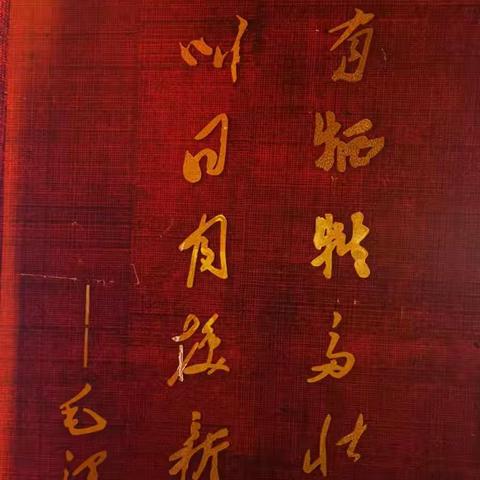 有牺牲多壮
叫日月换新
——毛泽